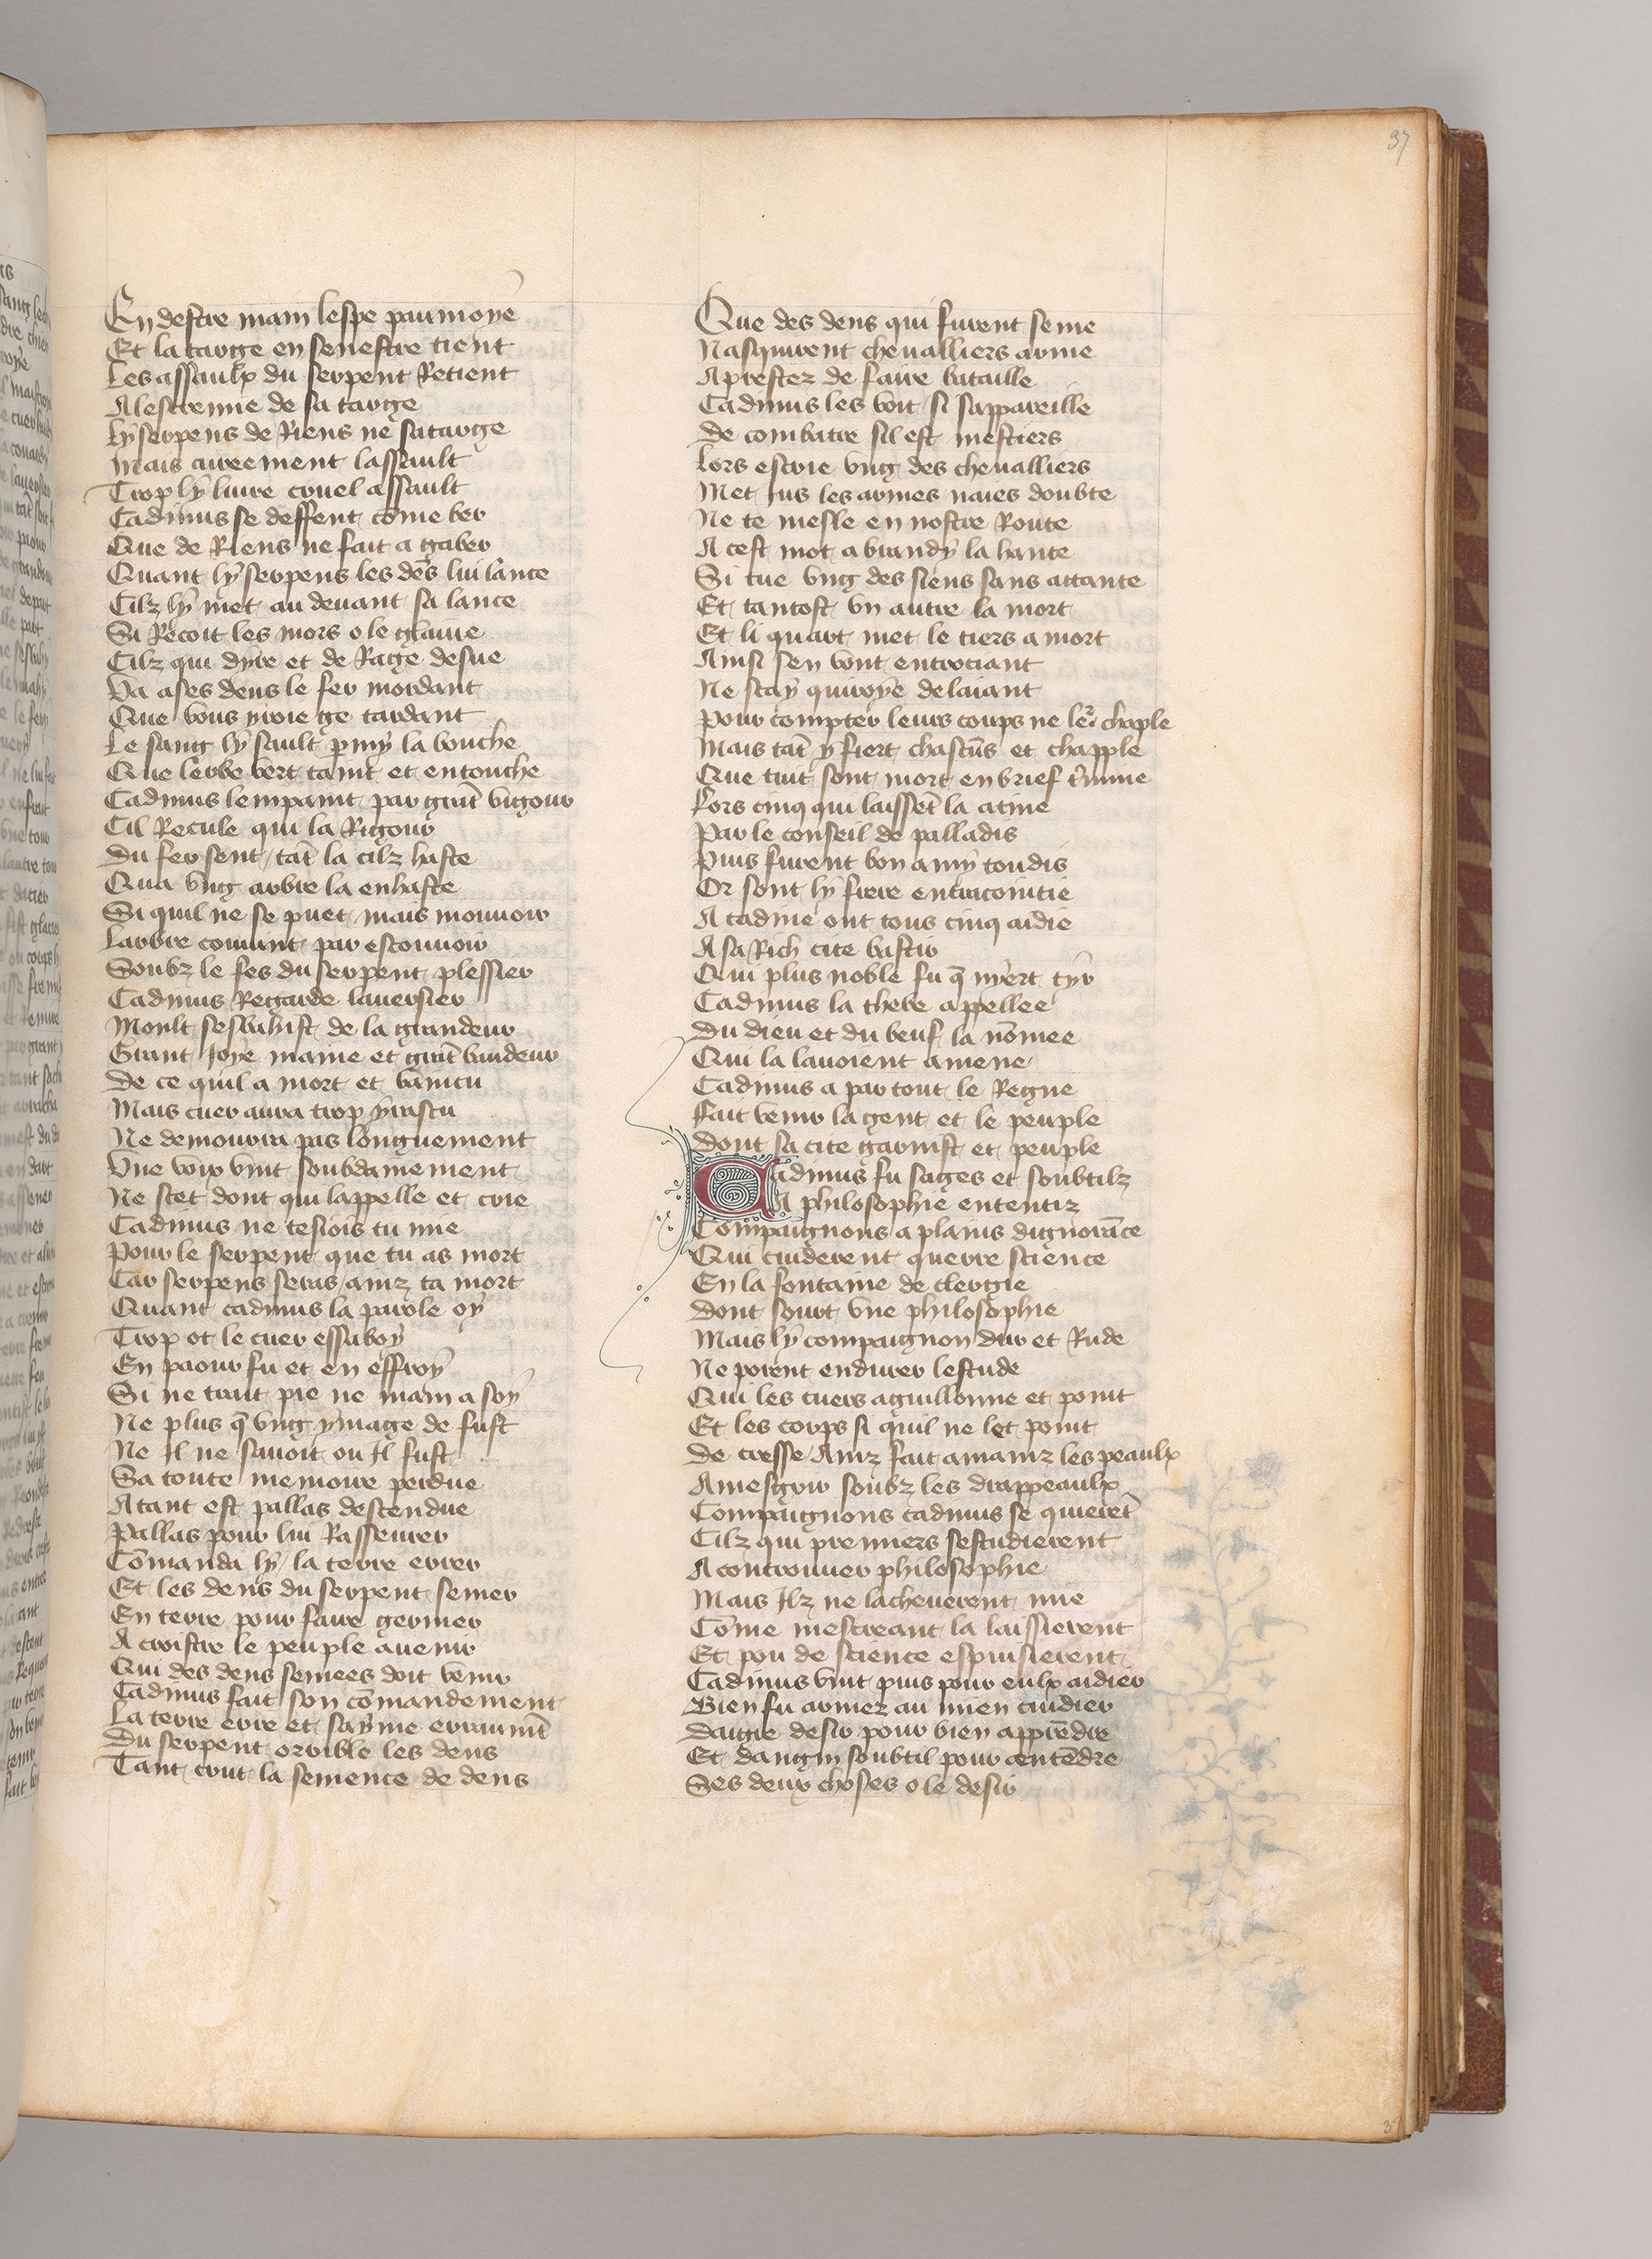 37
En destre main lespe paumoye
Et la targe en senestre tient
Les assaulx du serpent Retient
A lescremie de sa targe
Ly serpens de Riens ne satarge
Mais aireement lassault
Trop ly liure cruel assault
Cadmus se deffent cōme ber
Que de Riens ne fait a gaber
Quant ly serpens les dēs lui lance
Cilz ly met au deuant sa lance
Si Recoit les mors o le glaiue
Cilz qui dyre et de Rage desue
Va a ses dens le fer mordant
Que vous yroie ge tardant
Le sang ly sault pmy la bouche
Que lerbe vert taint et entouche
Cadmus lempaint par grāt vigour
Cil Recule qui la Rigour
Du fer sent / tāt la cilz haste
Qua vng arbre la enhaste
Si quil ne se puet mais mouuoir
Larbre conuint par estouuoir
Soubz le fes du serpent plessier
Cadmus Regarde lauersier
Moult sesbahist de la grandeur
Grant Joye maine et grāt baudeur
De ce quil a mort et vaincu
Mais cuer aura trop yrascu
Ne demourra pas longuement
Vne voix vint soubdainement
Ne scet dont qui lappelle et crie
Cadmus ne tesiois tu mie
Pour le serpent que tu as mort
Car serpens seras ainz ta mort
Quant cadmus la parole oy
Trop ot le cuer essaboy
En paour fu et en effroy
Si ne trait pie ne main a soy
Ne plus q̄ vng ymage de fust
Ne Il ne sauoit ou Il fust
Sa toute memoire perdue
Atant est pallas descendue
Pallas pour lui Rasseurer
Cōmanda ly la terre errer
Et les dens du serpent semer
En terre pour faire germer
A croistre le peuple auenir
Qui des dens semees doit venir
Cadmus fait son cōmandement
La terre erre et sayme erraumēt
Du serpent orrible les dens
Tant crut la semence de dens
Que des dens qui furent seme
Nasquirent cheualliers arme
Aprestez de faire bataille
Cadmus les voit si sappareille
De combatre sil est mestiers
Lors escrie vng des cheualliers
Met jus les armes naies doubte
Ne te mesle en nostre Route
A cest mot a brandy la hante
Si tue vng des siens sans attante
Et tantost vn autre la mort
Et li quart met le tiers a mort
Ainsi sen vont entrociant
Ne scay quiroye delaiant
Pour compter leurs coups ne le chaple
Mais tāt y fiert chascūs et chapple
Que tuit sont mort en brief tmine
Fors cinq qui laissēt la atine
Par le conseil de palladis
Puis furent bon amy toudis
Or sont ly frere entracointie
A cadme ont tous cinq aidie
A sa Rich cite bastir
Qui plus noble fu q̄ nyert tyr
Cadmus la thebe appellee
Du dieu et du beuf la nōmee
Qui la lauoient amene
Cadmus a par tout le Regne
Fait venir la gent et le peuple
Dont sa cite garnist et peuple
Cadmus fu sages et soubtilz
A philosophie ententiz
Compaignons a plains dignorāce
Qui cuiderent querre science
En la fontaine de clergie
Dont sourt vne philosophie
Mais ly compaignon dur et Rude
Ne porent endurer lestude
Qui les cuers aguillonne et point
Et les corps si quil ne let point
De cresse Ainz fait amaniz les peaulx
Amesgrir soubz les drappeaulx
Compaignons cadmus se quierēt
Cilz qui premiers sestudierent
A controuuer philosophie
Mais Ilz ne lacheuerent mie
Cōme mescreant la laissierent
Et pou de science espuisierent
Cadmus vint puis pour eulx aidier
Bien fu armez au mien cuidier
Daigre desir pour bien apprēdre
Et dangin soubtil pour entēdre
Ses deux choses o le desir